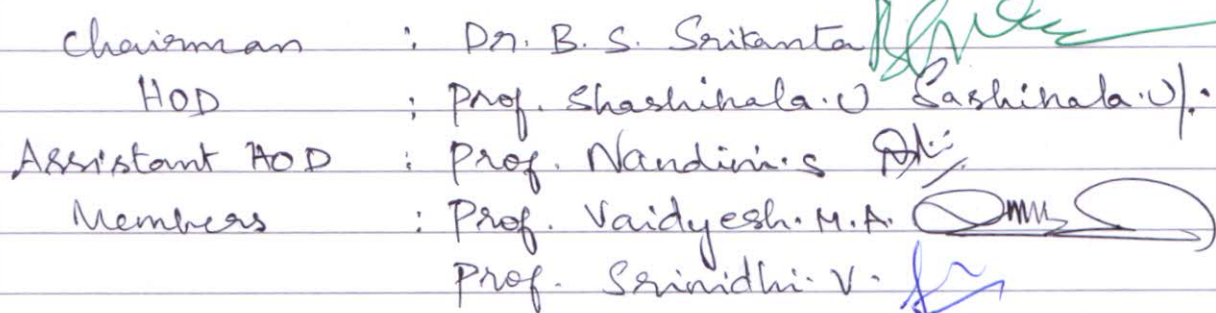 Chairman : Dr. B. S. Srikanta
HOD : Prof. Shashikala.U Sashikala.U/.
Assistant HOD : Prof. Nandini.S
Members : Prof. Vaidyesh.M.A.
Prof. Srinidhi.V.